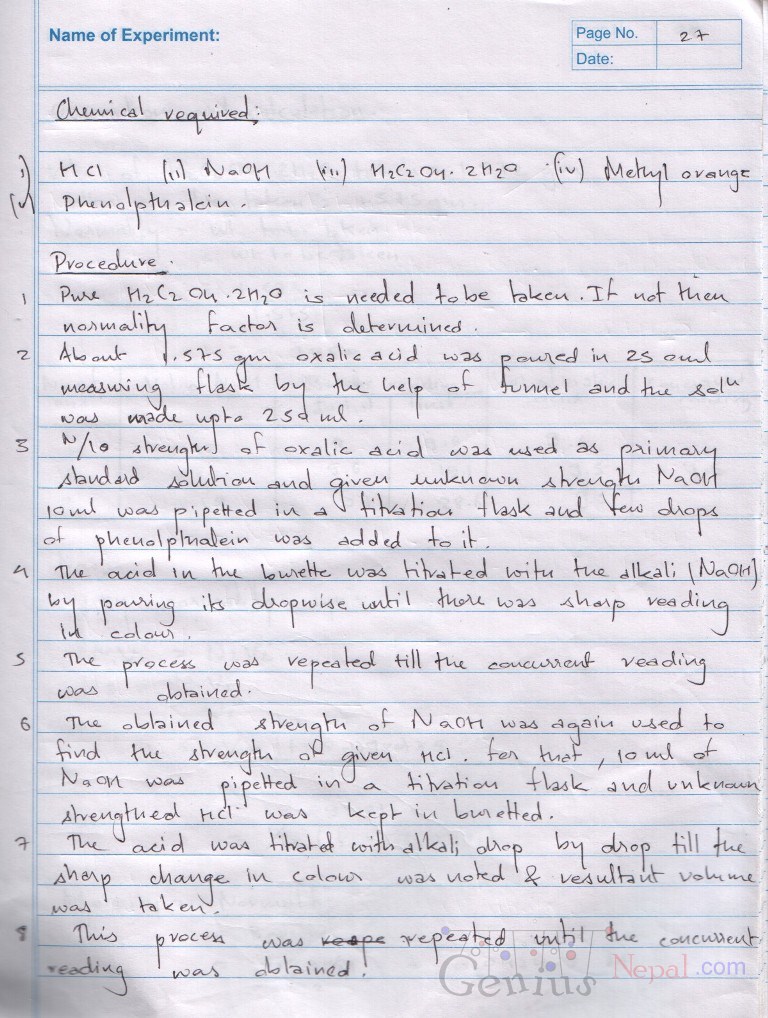 Name of Experiment:
Page No. 27
Date:
Chemical required:
i) HCl (ii) NaOH (iii) H2C2O4. 2H2O (iv) Methyl orange
(v) Phenolpthalein.
Procedure.
1 Pure H2C2O4.2H2O is needed to be taken. If not then
normality factor is determined.
2 About 1.575 gm oxalic acid was poured in 250ml
measuring flask by the help of funnel and the solⁿ
was made upto 250 ml.
3 N/10 strength of oxalic acid was used as primary
standard solution and given unknown strength NaOH
10ml was pipetted in a titration flask and few drops
of phenolpthalein was added to it.
4 The acid in the burette was titrated with the alkali (NaOH)
by pouring its dropwise until there was sharp reading
in colour.
5 The process was repeated till the concurrent reading
was obtained.
6 The obtained strength of NaOH was again used to
find the strength of given HCl. For that, 10 ml of
NaOH was pipetted in a titration flask and unknown
strengthed HCl was kept in buretted.
7 The acid was titrated with alkali drop by drop till the
sharp change in colour was noted & resultant volume
was taken.
8 This process was repeated until the concurrent
reading was obtained.
Genius Nepal.com